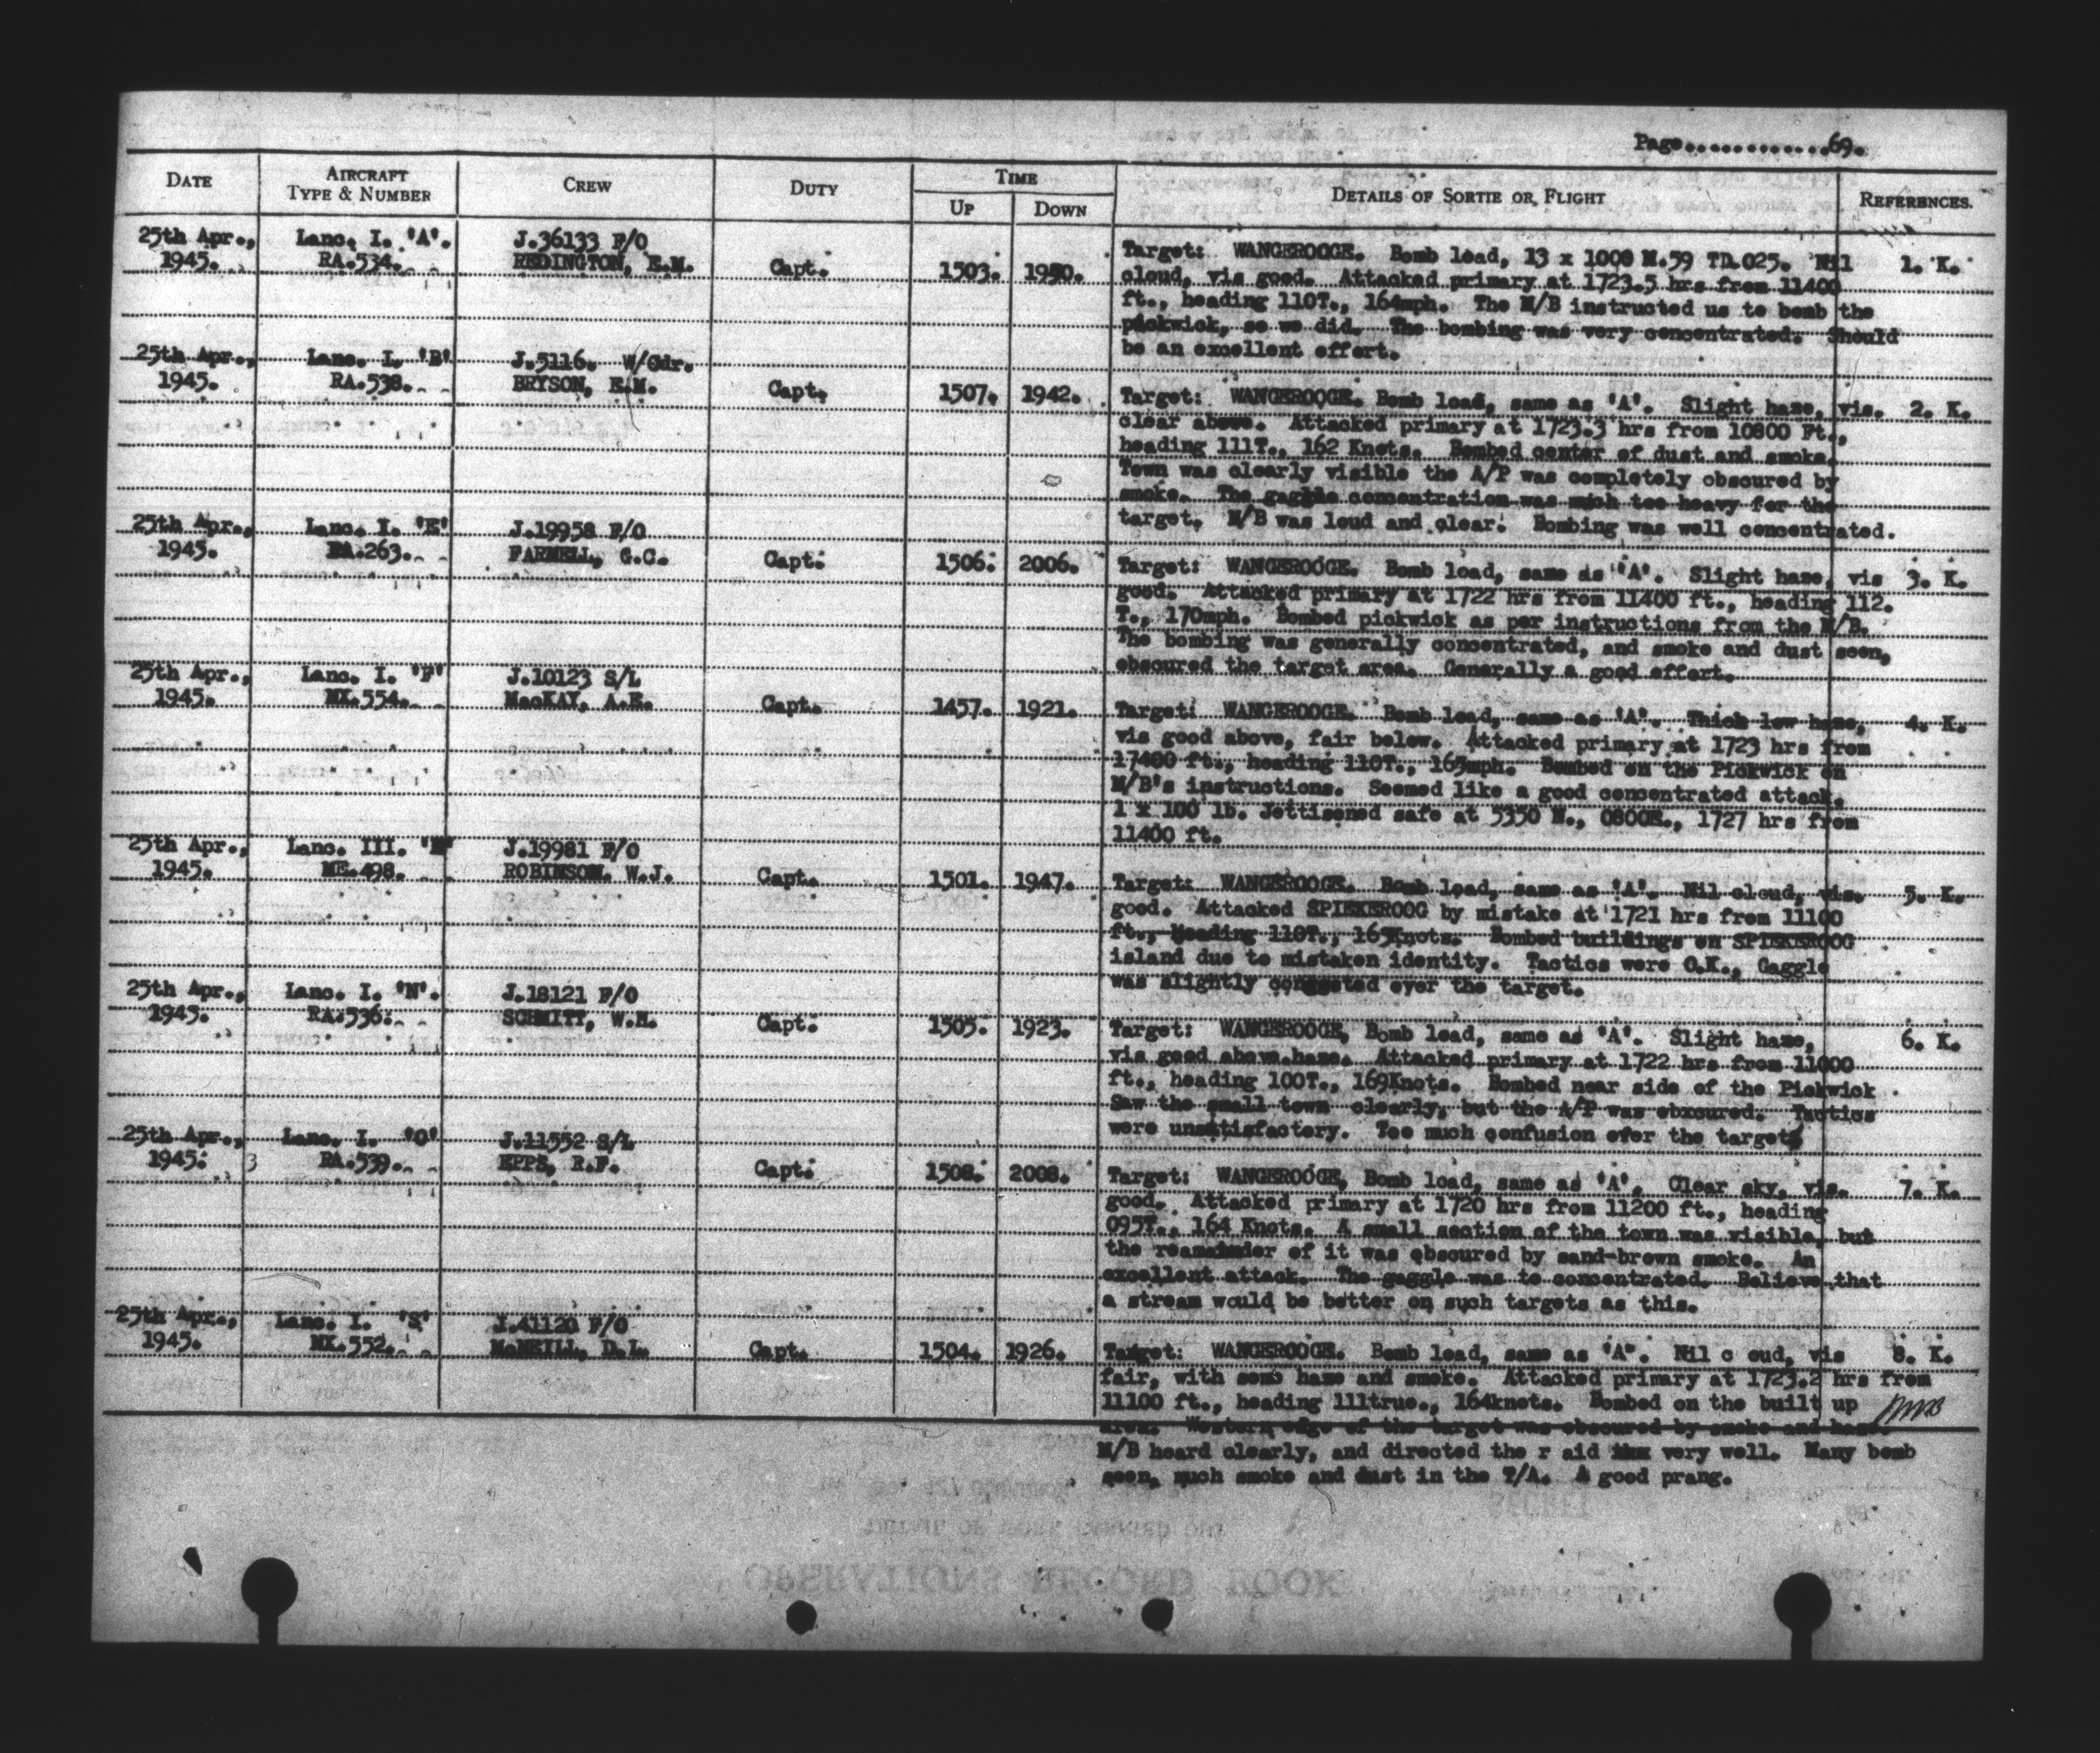 Page.............69.
DATE
AIRCRAFT
TYPE & NUMBER
CREW
DUTY
TIME
UP
DOWN
DETAILS OF SORTIE OR FLIGHT
REFERENCES.
25th Apr.,
1945.
Lanc. I. 'A'.
RA.534.
J.36133 F/O
REDINGTON, E.M.
Capt.
1503.
1950.
Target: WANGEROOGE. Bomb load, 13 x 1000 M.59 TD.025. Nil
cloud, vis good. Attacked primary at 1723.5 hrs from 11400
ft., heading 110T., 164mph. The M/B instructed us to bomb the
pickwick, so we did. The bombing was very concentrated. Should
be an excellent effort.
1. K.
25th Apr.,
1945.
Lanc. I. 'B'
RA.538.
J.5116. W/Cdr.
BRYSON, E.M.
Capt.
1507.
1942.
Target: WANGEROOGE. Bomb load, same as 'A'. Slight haze, vis.
clear above. Attacked primary at 1723.3 hrs from 10800 Ft.,
heading 111T., 162 Knots. Bombed center of dust and smoke.
Town was clearly visible the A/P was completely obscured by
smoke. The gaggle concentration was much too heavy for the
target. M/B was loud and clear. Bombing was well concentrated.
2. K.
25th Apr.,
1945.
Lanc. I. 'E'
PA.263.
J.19958 F/O
FARNELL, G.C.
Capt.
1506.
2006.
Target: WANGEROOGE. Bomb load, same as 'A'. Slight haze, vis
good. Attacked primary at 1722 hrs from 11400 ft., heading 112.
T., 170mph. Bombed pickwick as per instructions from the M/B.
The bombing was generally concentrated, and smoke and dust seen,
obscured the target area. Generally a good effort.
3. K.
25th Apr.,
1945.
Lanc. I. 'F'
NX.554.
J.10123 S/L
MacKAY, A.E.
Capt.
1457.
1921.
Target: WANGEROOGE. Bomb load, same as 'A'. Thick low haze,
vis good above, fair below. Attacked primary at 1723 hrs from
17400 ft., heading 110T., 165mph. Bombed on the Pickwick on
M/B's instructions. Seemed like a good concentrated attack.
1 x 100 lb. Jettisoned safe at 5350 N., 0800E., 1727 hrs from
11400 ft.
4. K.
25th Apr.,
1945.
Lanc. III.
ME.498.
J.19981 F/O
ROBINSON, W.J.
Capt.
1501.
1947.
Target: WANGEROOGE. Bomb load, same as 'A'. Nil cloud, vis.
good. Attacked SPIEKEROOG by mistake at 1721 hrs from 11100
ft., heading 110T., 165Knots. Bombed buildings on SPIEKEROOG
island due to mistaken identity. Tactics were O.K., Gaggle
was slightly congested over the target.
5. K.
25th Apr.,
1945.
Lanc. I. 'N'.
RA.536.
J.18121 F/O
SCHMITT, W.H.
Capt.
1505.
1923.
Target: WANGEROOGE, Bomb load, same as 'A'. Slight haze,
vis good above haze. Attacked primary at 1722 hrs from 11000
ft., heading 100T., 169Knots. Bombed near side of the Pickwick
Saw the small town clearly, but the A/P was obxcured. Tactics
were unsatisfactory. Too much confusion over the target
6. K.
25th Apr.,
1945.
3
Lanc. I. 'O'
RA.539.
J.11552 S/L
EPPS, R.F.
Capt.
1508.
2008.
Target: WANGEROOGE, Bomb load, same as 'A'. Clear sky, vis.
good. Attacked primary at 1720 hrs from 11200 ft., heading
095T., 164 Knots. A small section of the town was visible, but
the reamainder of it was obscured by sand-brown smoke. An
excellent attack. The gaggle was to concentrated. Believe that
a stream would be better on such targets as this.
7. K.
25th Apr.,
1945.
Lanc. I. 'S'
NX.552.
J.41120 F/O
McNEILL, D.L.
Capt.
1504.
1926.
Target: WANGEROOGE. Bomb load, same as 'A'. Nil c oud, vis
fair, with some haze and smoke. Attacked primary at 1723.2 hrs from
11100 ft., heading 111true., 164knots. Bombed on the built up
area. Western edge of the target was obscured by smoke and haze.
M/B heard clearly, and directed the r aid very well. Many bomb
seen, much smoke and dust in the T/A. A good prang.
8. K.